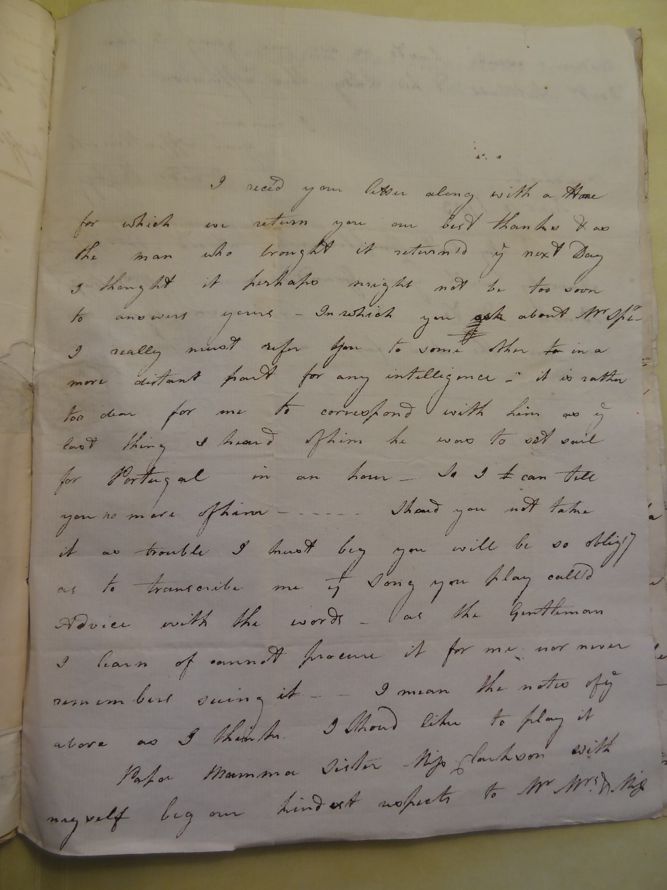 I recd your letter along with a Hare
for which we return you our best thanks & as
the man who brought it return'd ye next Day
I thought it perhaps might not be too soon
to answer yours – In which you ask about Mr
I really must refer you to some other in a
more distant part for any intelligence – it is rather
too dear for me to correspond with him as ye
last thing I heard of him he was to set sail
for Portugal in an hour – So I can tell
you no more of him – – – – – – Shoud you not take
it as trouble I must beg you will be so oblig'g
as to transcribe me ye Song you play call'd
Advice with the words – as the Gentleman
I learn of cannot procure it for me, nor never
remembers seeing it – – I mean the notes of ye
above as I think I shoud like to play it
Papa Mamma Sister Miss Clarkson with
myself beg our kindest respects to Mr Mrs & Miss